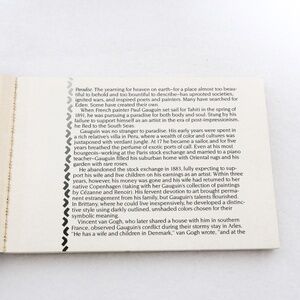 Paradise. The yearning for heaven on earth–for a place almost too beau-
tiful to behold and too bountiful to describe–has uprooted societies,
ignited wars, and inspired poets and painters. Many have searched for
Eden. Some have created their own.
When French painter Paul Gauguin set sail for Tahiti in the spring of
1891, he was pursuing a paradise for both body and soul. Stung by his
failure to support himself as an artist in the era of post-impressionism,
he fled to the South Seas.
Gauguin was no stranger to paradise. His early years were spent in
a relative's villa in Peru, where a wealth of color and cultures was
juxtaposed with verdant jungle. At 17 he became a sailor, and for five
years breathed the perfume of exotic ports of call. Even at his most
bourgeois–working at the Paris stock exchange and married to a piano
teacher–Gauguin filled his suburban home with Oriental rugs and his
garden with rare roses.
He abandoned the stock exchange in 1883, fully expecting to sup-
port his wife and five children on his earnings as an artist. Within three
years, however, his money was gone and his wife had returned to her
native Copenhagen (taking with her Gauguin's collection of paintings
by Cézanne and Renoir). His fervent devotion to art brought perma-
nent estrangement from his family, but Gauguin's talents flourished.
In Brittany, where he could live inexpensively, he developed a distinc-
tive style using darkly outlined, unshaded colors chosen for their
symbolic meaning.
Vincent van Gogh, who later shared a house with him in southern
France, observed Gauguin's conflict during their stormy stay in Arles.
"He has a wife and children in Denmark," van Gogh wrote, "and at the